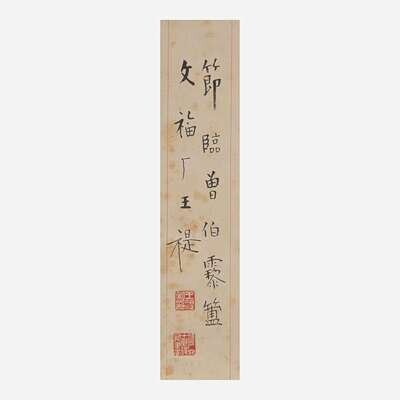 節臨曾伯霥簠
文福厂王禔